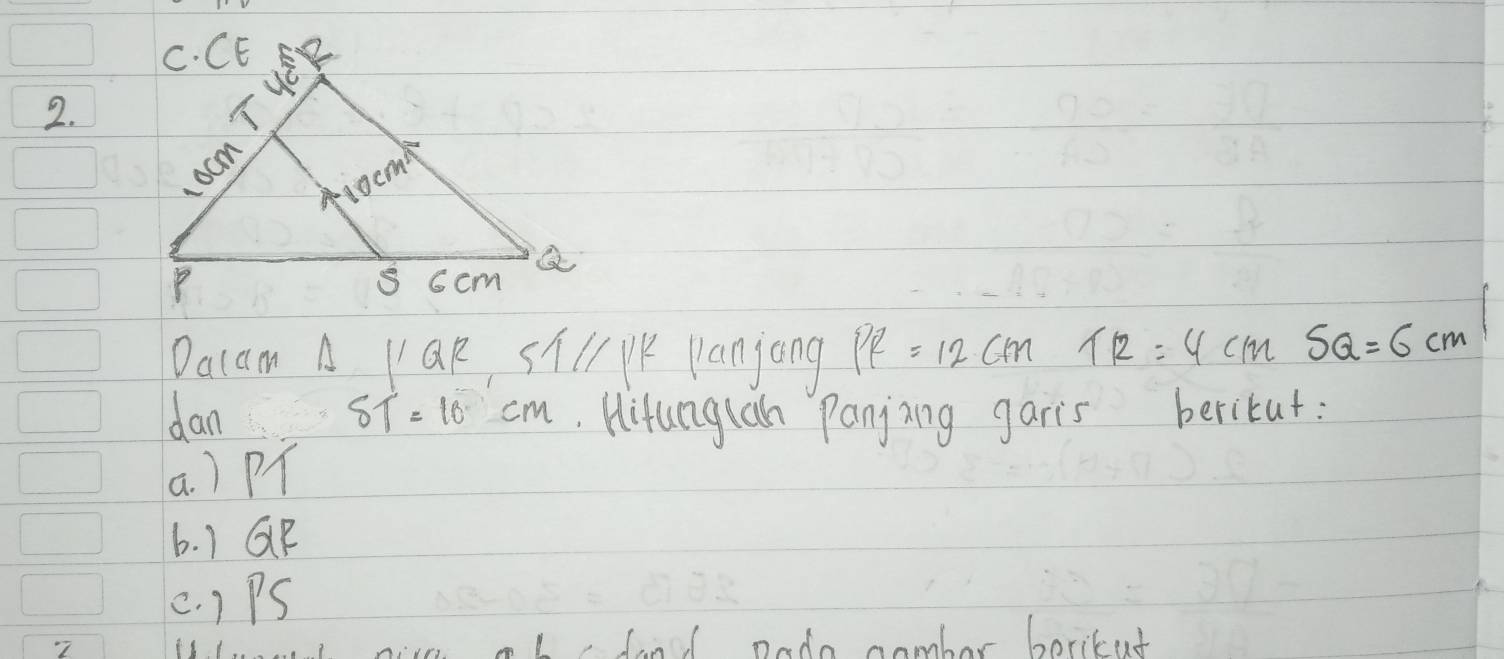 C. CE
2.
R
4cm
T
10cm
10cm
P
S 6cm
Q
Dalam Δ PQR, ST // PR panjang PR = 12 cm TR = 4 cm SQ = 6 cm
dan ST = 10 cm. Hitunglah Panjang garis berikut:
a.) PT
b.) QR
c.) PS
pada gambar berikut